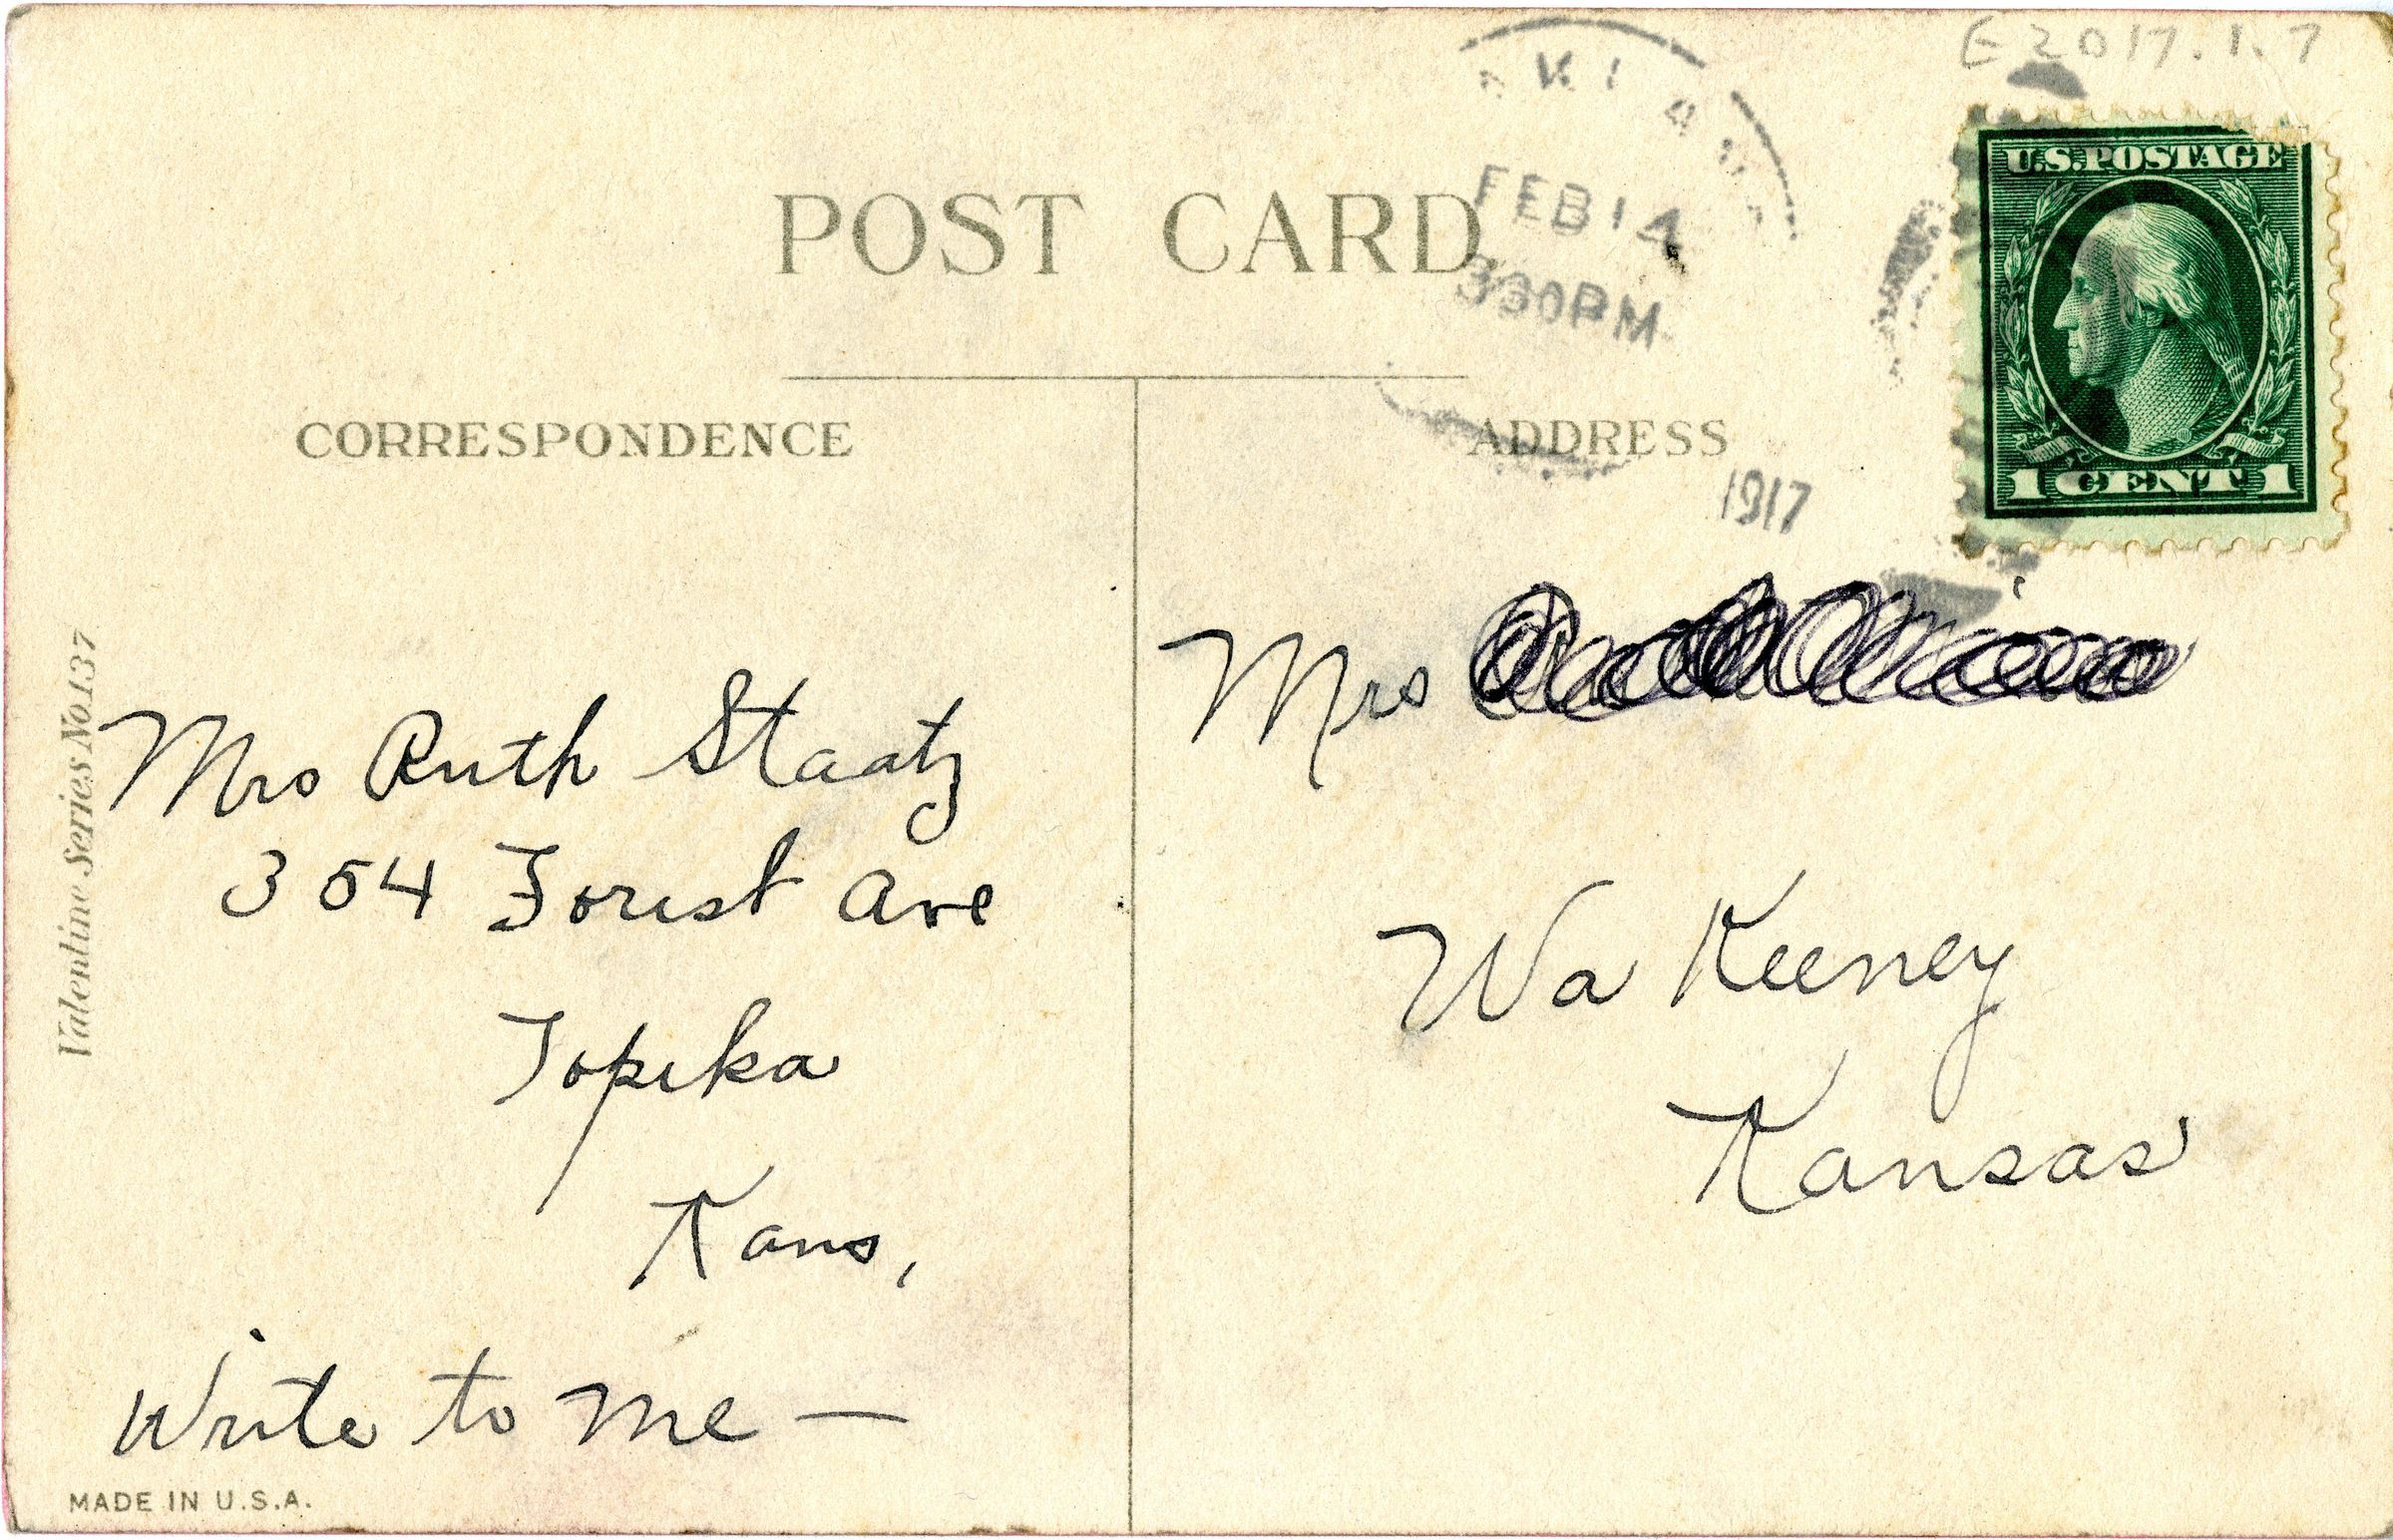 E2017.1.7
U.S. POSTAGE
1 CENT 1
POST CARD
FEB 14
330PM
1917
CORRESPONDENCE
ADDRESS
Valentine Series No.137
Mrs Ruth Staatz
354 Forest Ave
Topeka
Kans,
Write to me —
MADE IN U.S.A.
Mrs
Wa Keeney
Kansas